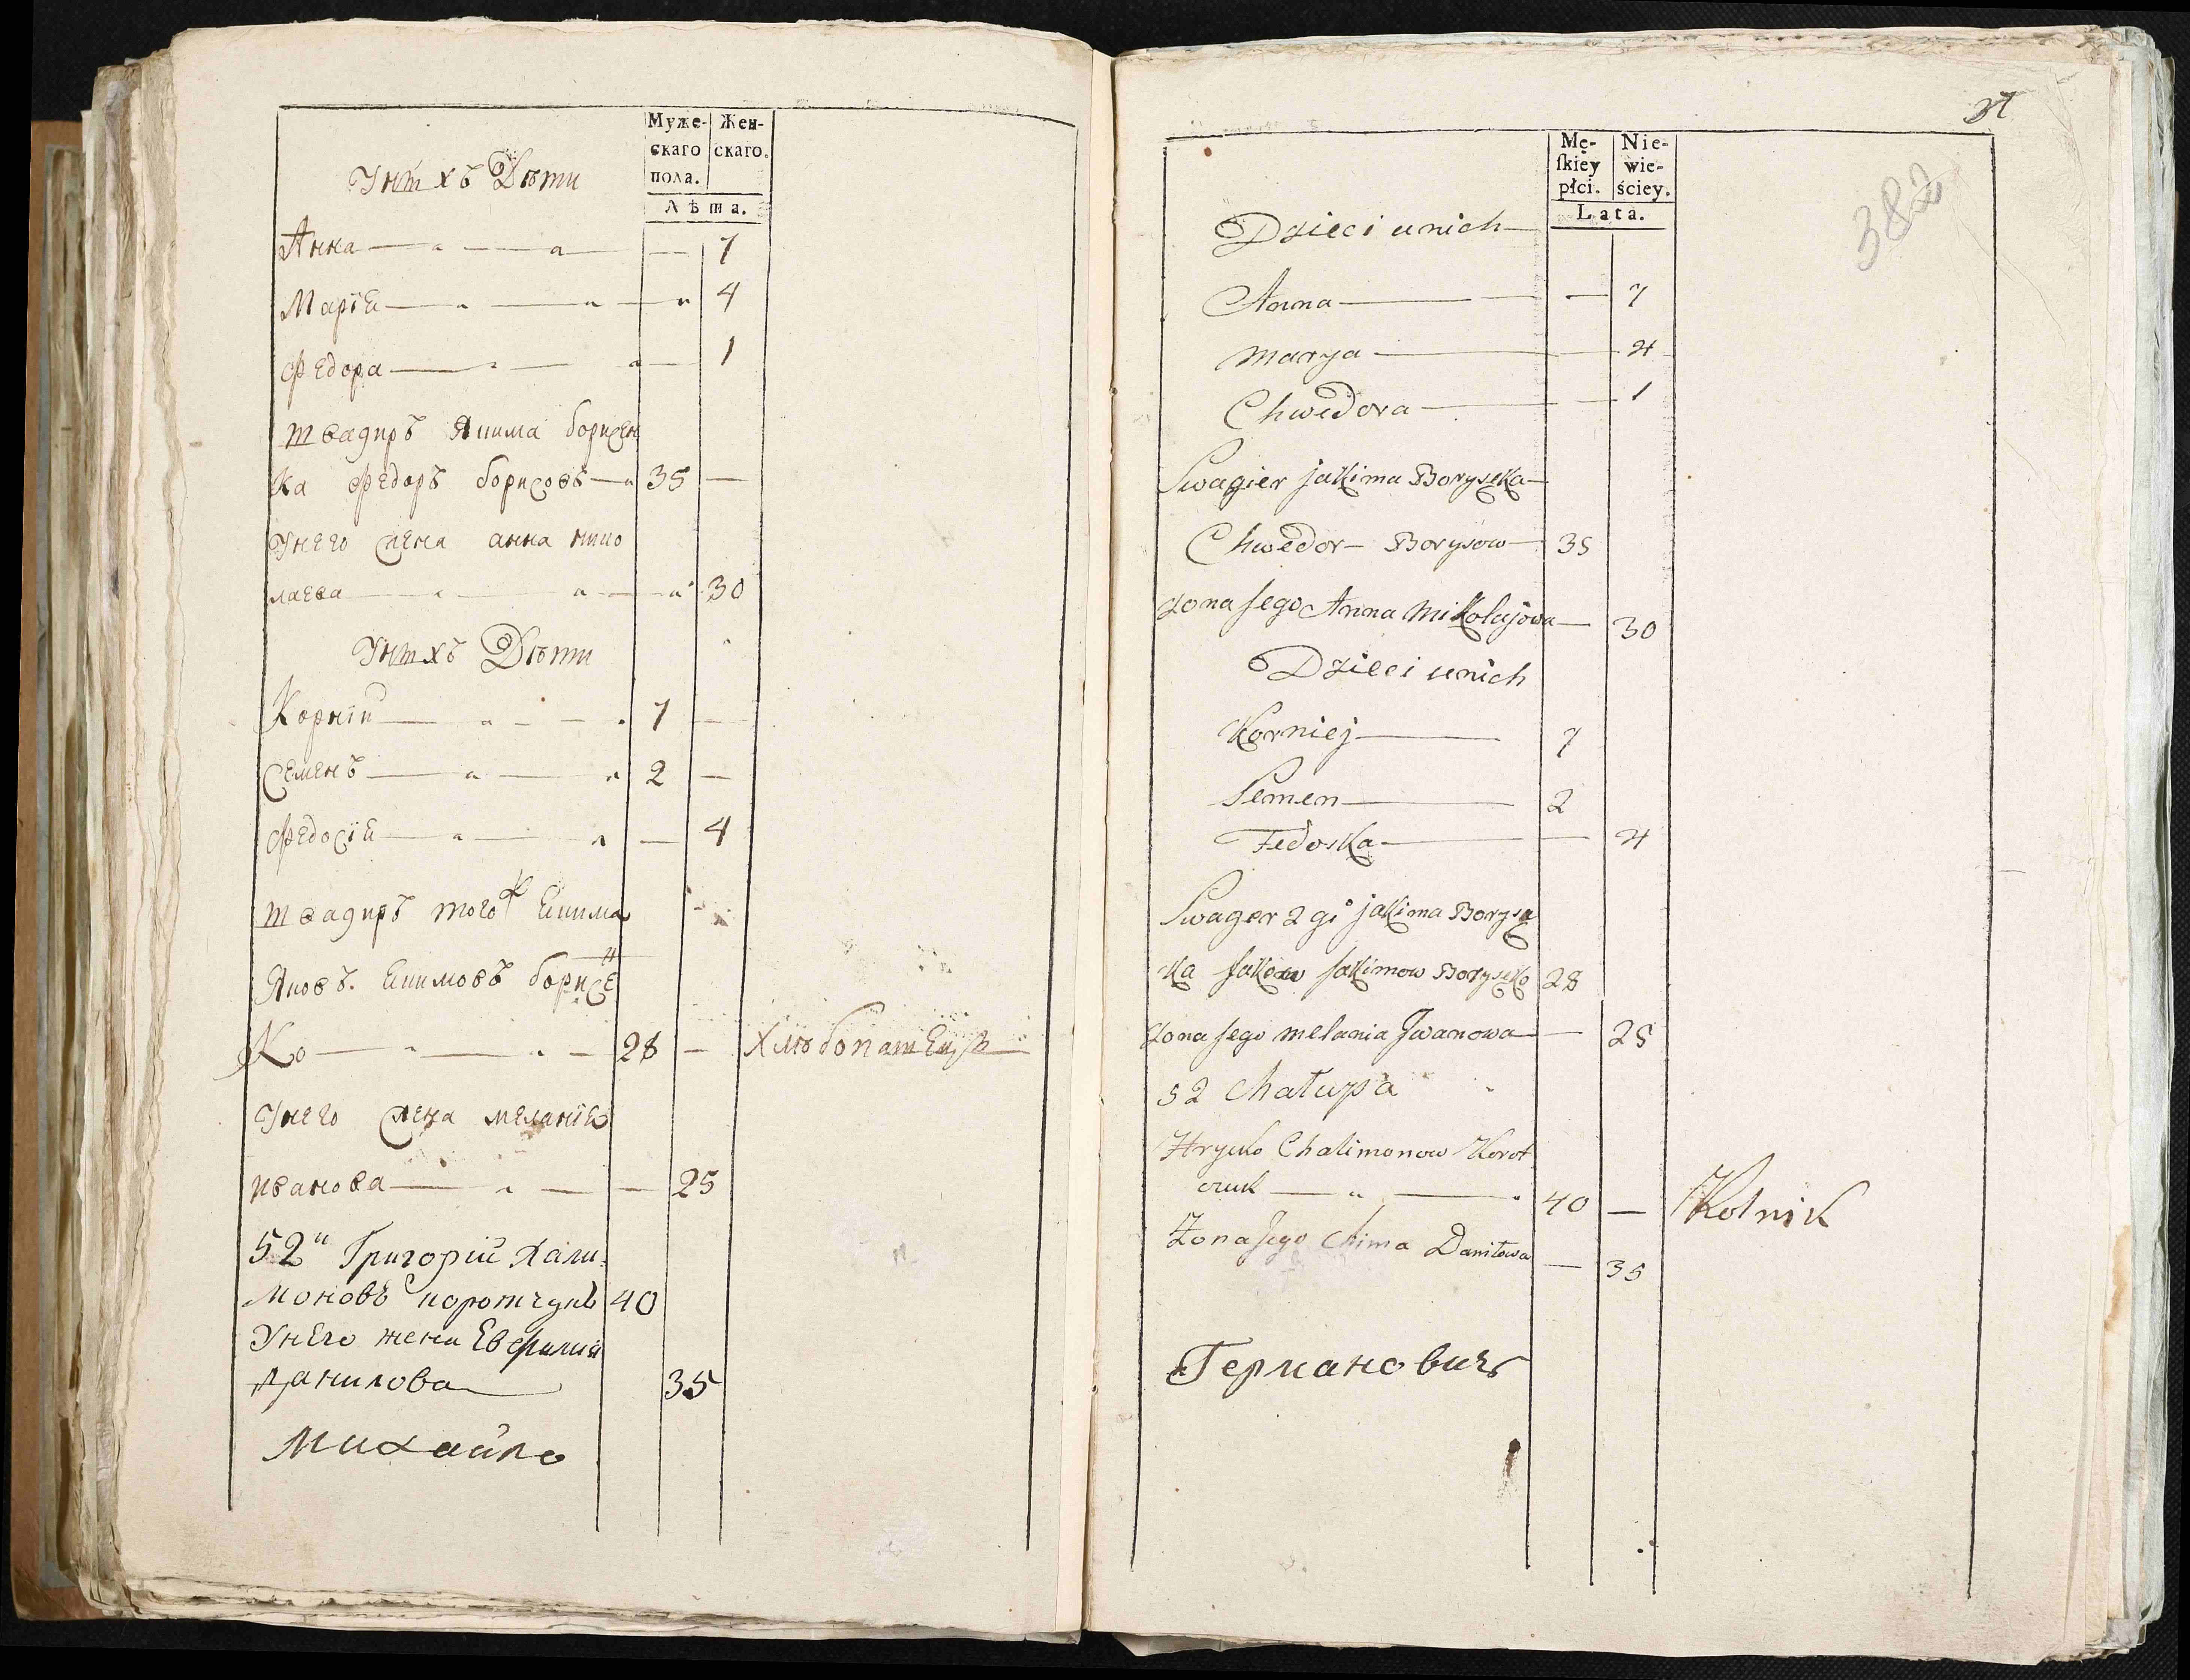 Муже- Жен-
скаго скаго.
пола.
Лѣта.
Унихъ Дѣти
Анна — 7
Марія — 4
Федора — 1
швагиръ Якима борисен
ка Федоръ борисовъ — 35 —
Унего жена анна нико
лаева — 30
Унихъ Дѣти
Корній — 7 —
Семенъ — 2 —
Федосія — 4
швагиръ того ж Якима
Яковъ Якимовъ борисен
Ко — 28 — Хлѣбопашецъ
Унего жена меланія
иванова — 25
52 Григорій Хали
моновъ коротчукъ 40
Унего жена Евфимія
Данилова 35
Михайло
Mę- Nie-
ſkiéy wie-
płci. ściey.
Lata.
382
Dzieci u nich
Anna — 7
Marya — 4
Chwedora — 1
Swagier jakima Boryseka
Chwedor Borysow 35
Zona jego Anna Mikołajowa — 30
Dzieci u nich
Korniej — 7
Semen — 2
Fedoska — 4
Swager 2 gi jakima Borysę
ka Jakow Jakimow Borysęko 28
Zona jego melania Jwanowa — 25
52 Chałupa
Hrycko Chalimonow Korot
czuk — 40 — Rolnik
Zona jego Chima Daniłowa — 35
Германовичъ